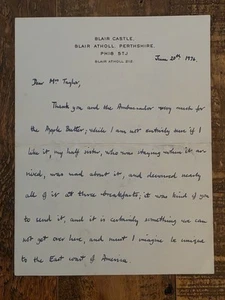 BLAIR CASTLE,
BLAIR ATHOLL, PERTHSHIRE,
PH18 5TJ
BLAIR ATHOLL 212.
June 28th 1976.
Dear Mrs Taylor,
Thank you and the Ambassador very much for
the Apple Butter; while I am not entirely sure if I
like it, my half sister, who was staying when it ar-
rived, was mad about it, and devoured nearly
all of it at three breakfasts; it was kind of you
to send it, and it is certainly something we can
not get over here, and must I imagine be unique
to the East coast of America.